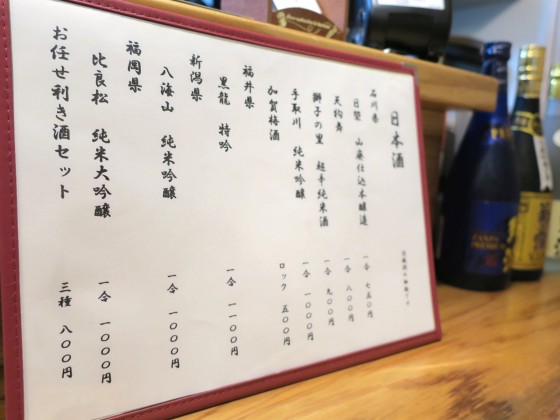 日本酒
石川県
日榮 山廃仕込本醸造 一合 七五〇円
天狗舞 一合 八〇〇円
獅子の里 超辛純米酒 一合 九〇〇円
手取川 純米吟醸 一合 一〇〇〇円
加賀梅酒 ロック 五〇〇円
福井県
黒龍 特吟 一合 一一〇〇円
新潟県
八海山 純米吟醸 一合 一〇〇〇円
福岡県
比良松 純米大吟醸 一合 一〇〇〇円
お任せ利き酒セット 三種 八〇〇円